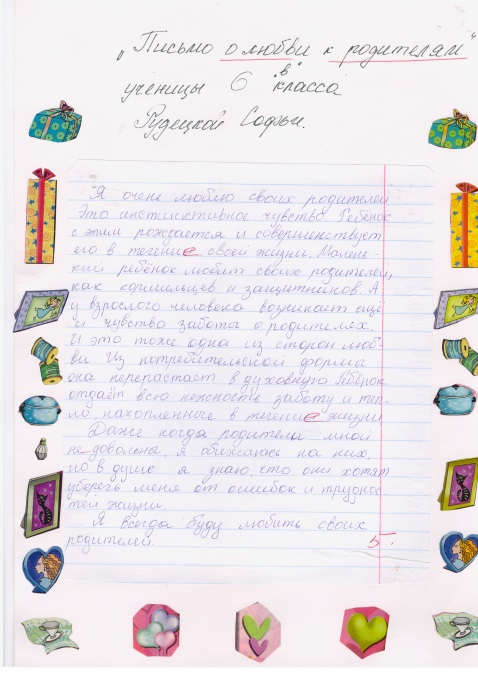 „Письмо о любви к родителям"
ученицы 6 "в" класса
Рудецкой Софьи.
Я очень люблю своих родителей.
Это инстинктивное чувство. Ребёнок
с этим рождается и совершенствует
его в течение своей жизни. Малень-
кий ребёнок любит своих родителей,
как кормильцев и защитников. А
у взрослого человека возникает ещё
и чувство заботы о родителях.
И это тоже одна из сторон люб-
ви. Из потребительской формы
она перерастает в духовную. Ребёнок
отдаёт всю нежность, заботу и теп-
ло накопленные в течение жизни.
Даже когда родители мной
не довольны, я обижаюсь на них,
но в душе я знаю, что они хотят
уберечь меня от ошибок и труднос-
тей жизни.
Я всегда буду любить своих
родителей.
5.